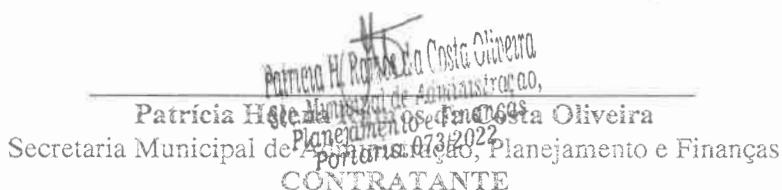 Patricia H. Ramos da Costa Oliveira
Sec. Municipal de Administração,
Planejamento e Finanças
Portaria 073/2022
Patrícia Helena Ramos da Costa Oliveira
Secretaria Municipal de Administração, Planejamento e Finanças
CONTRATANTE